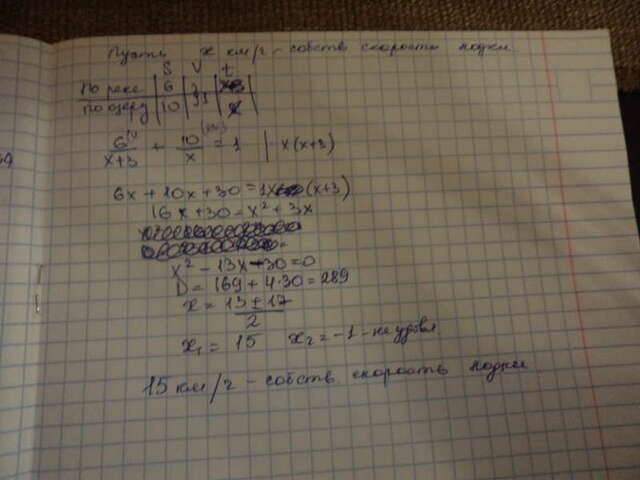 Пусть x км/ч - собств скорость лодки.
S V t
По реке 6
По озеру 10
6/(x+3) + 10/x = 1 | x(x+3)
6x + 10x + 30 = 1x (x+3)
16x + 30 = x² + 3x
x² - 13x - 30 = 0
D = 169 + 4·30 = 289
x = (13 ± 17)/2
x₁ = 15 x₂ = -1 - не удовл.
15 км/ч - собств. скорость лодки